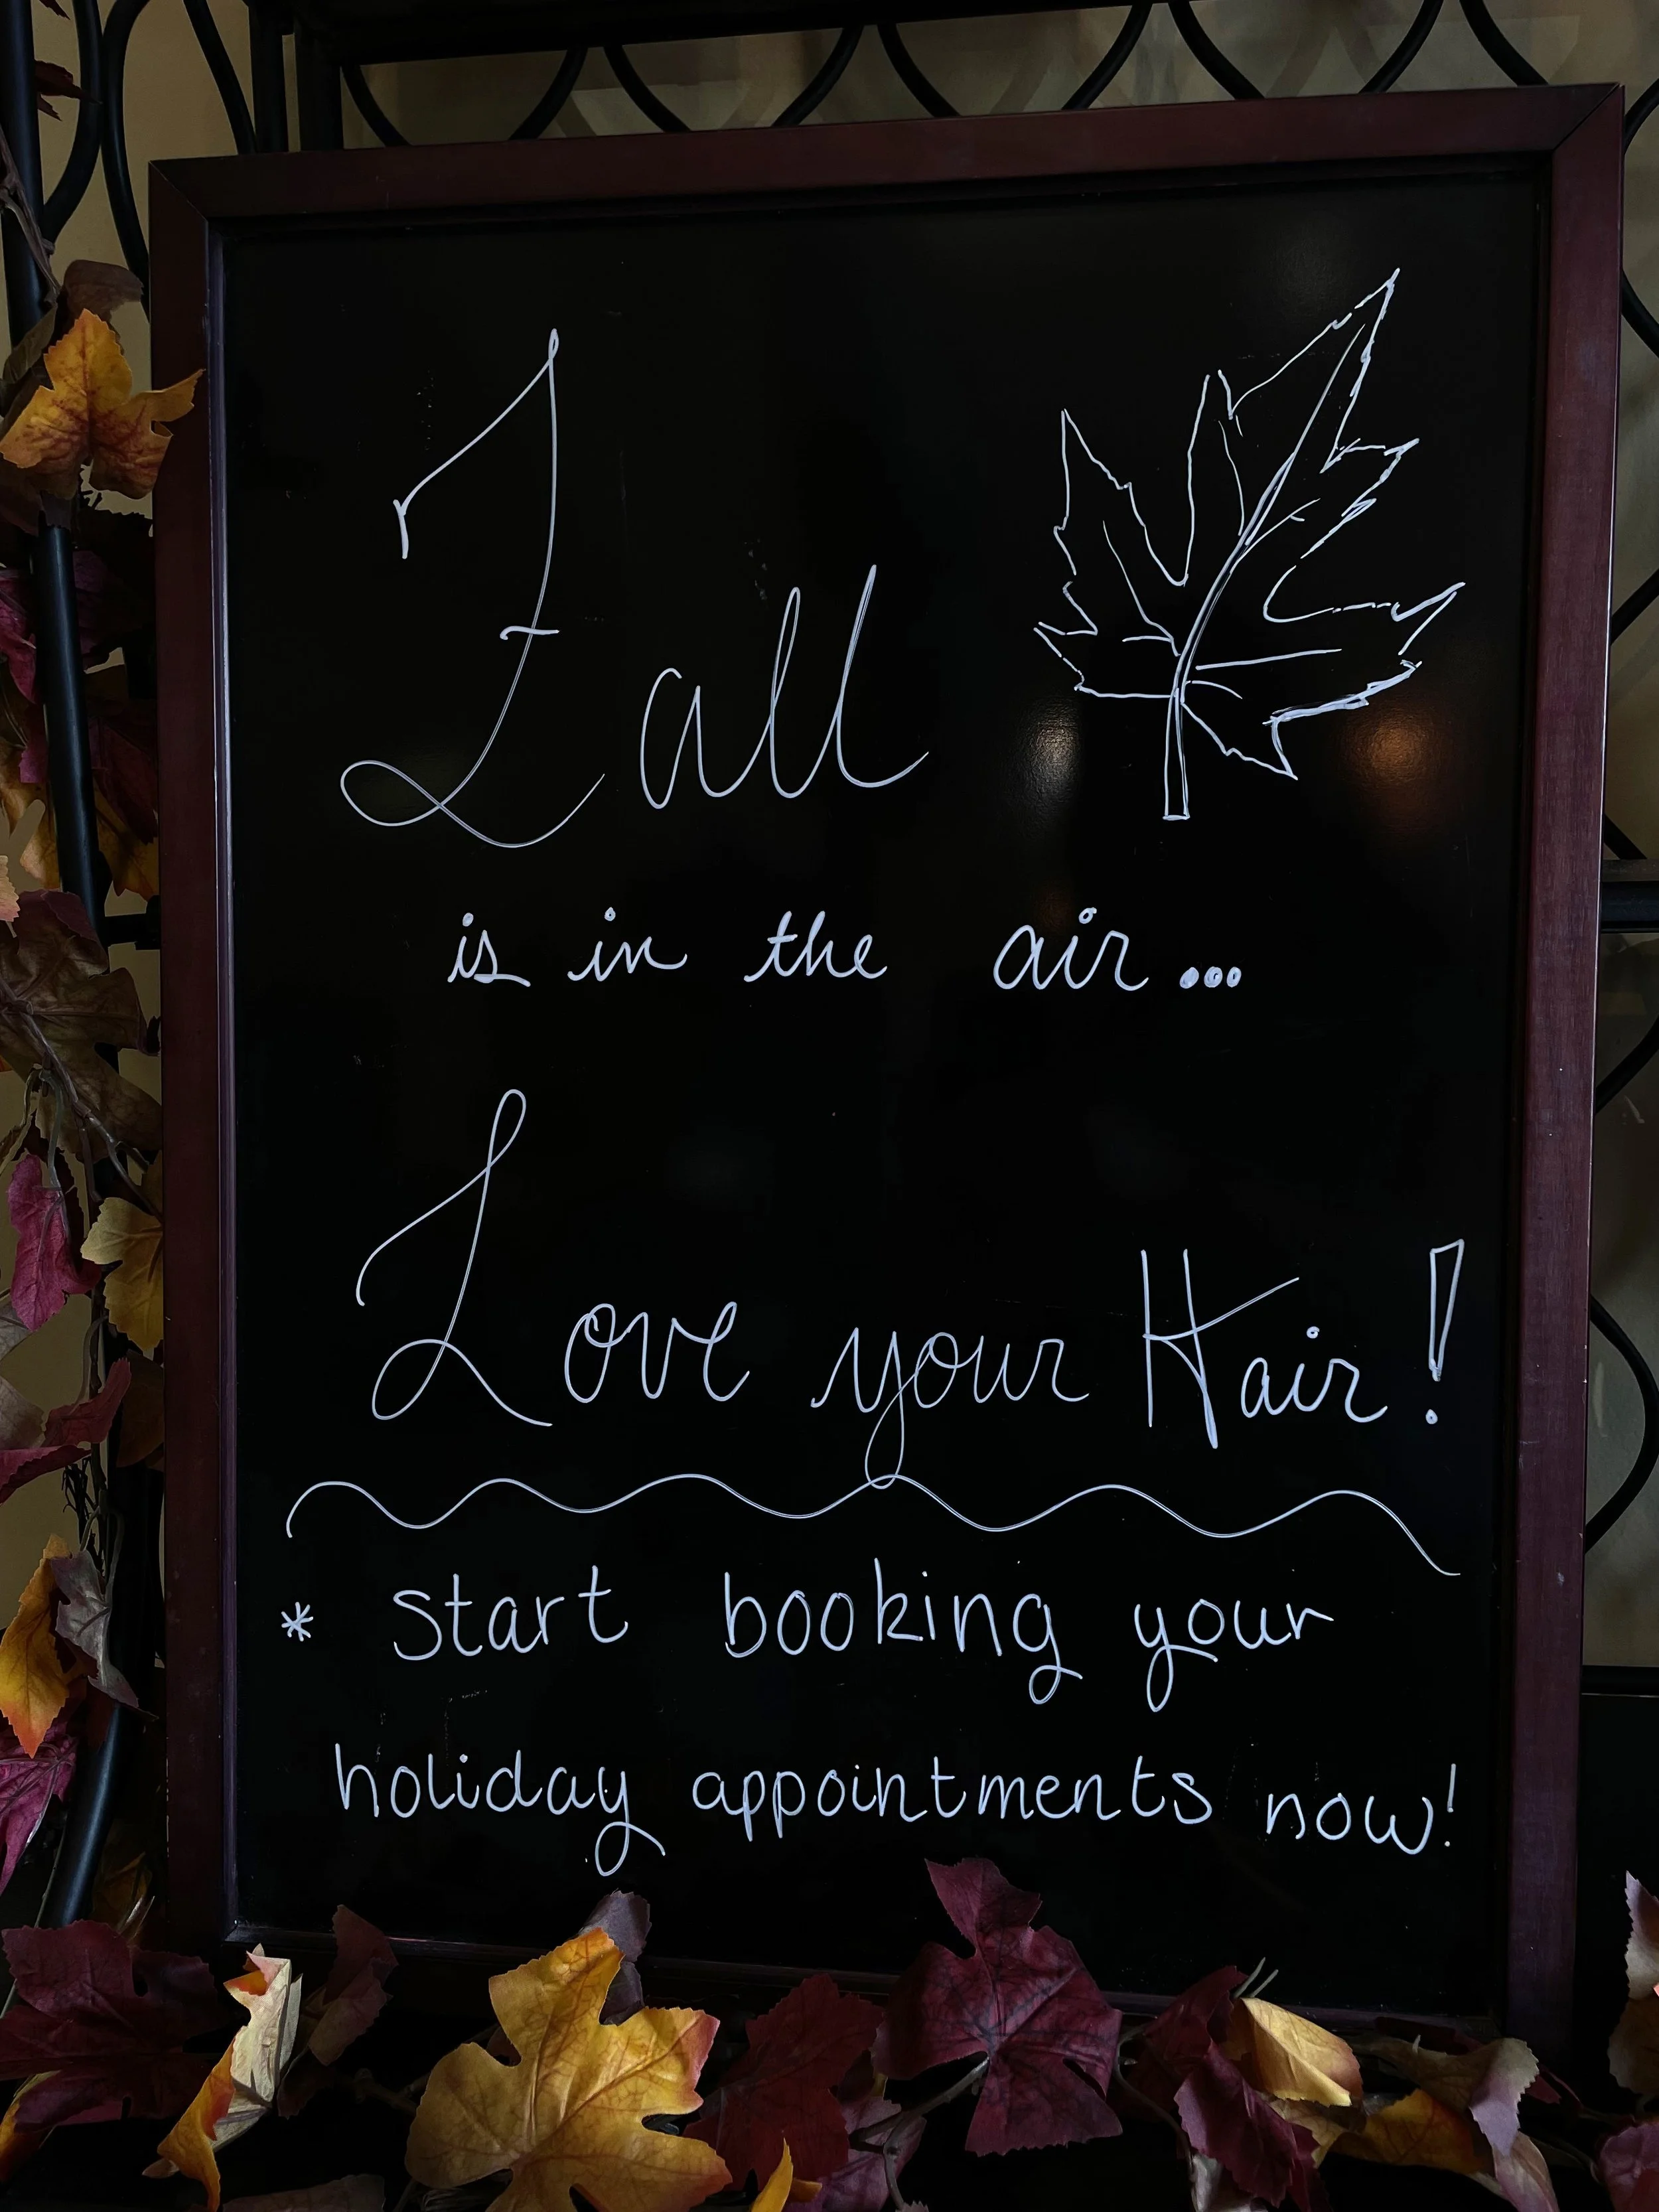 Fall
is in the air...
Love your Hair!
* Start booking your
holiday appointments now!